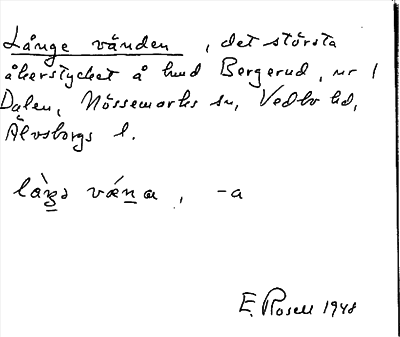 Långe vänden, det största
åkerstycket å hmd Bergerud, nr 1
Dalen, Nössemarks sn, Vedbo hd,
Älvsborgs l.
væna, -a
E. Rosell 1948